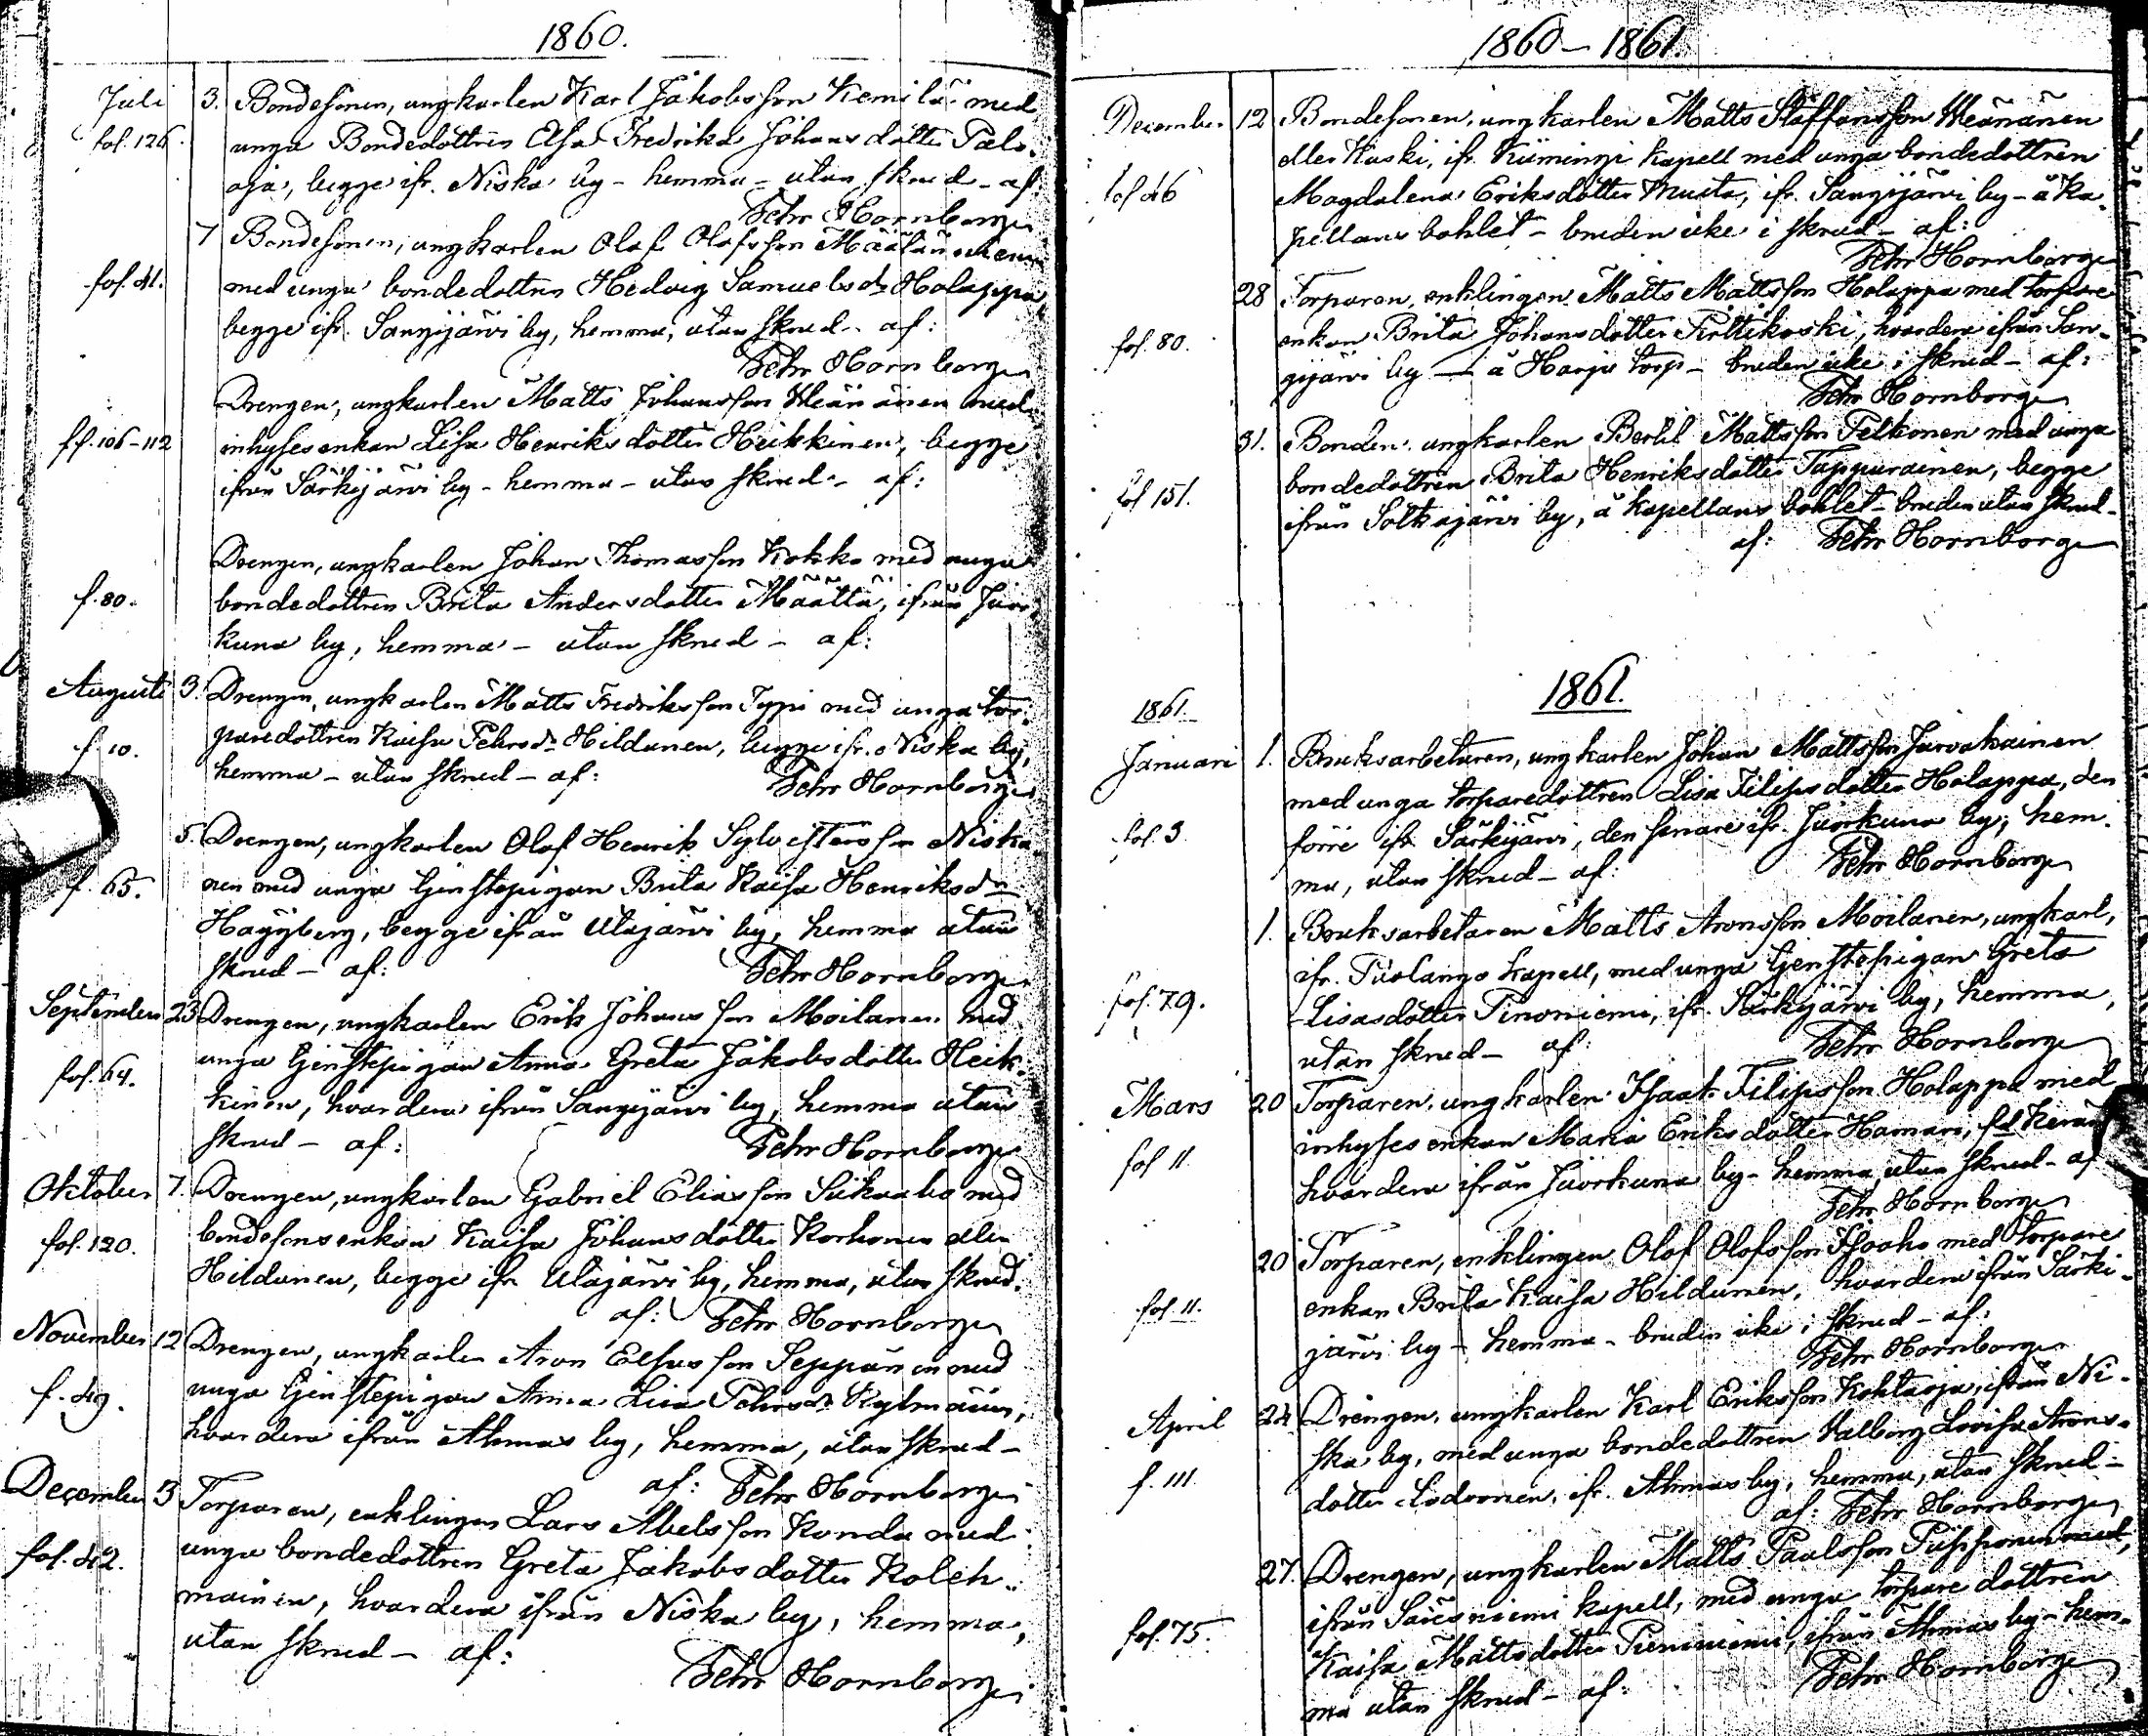 1860.
Juli 3. Bondesonen, ungkarlen Karl Jakobsson Kemilä med
fol. 126. unga Bondedottren Elsa Fredrika Johansdotter Palo-
oja, begge ifr. Niska by - hemma - utan skrud - af
Pehr Hornborg
7 Bondesonen, ungkarlen Olof Olofsson Määtän
fol. 41. med unga bondedottren Hedvig Samuelsdr Holappa,
begge ifr. Sangijärvi by, hemma, utan skrud - af:
Pehr Hornborg
Drengen, ungkarlen Matts Johansson Väänänen med
ff. 106-112 inhysesenkan Lisa Henriksdotter Heikkinen, begge
ifrån Särkijärvi by - hemma - utan skrud - af:
Drengen, ungkarlen Johan Thomasson Kokko med unga
f. 80. bondedottren Brita Andersdotter Määttä, ifrån Juor-
kuna by, hemma - utan skrud - af:
Augusti 3. Drengen, ungkarlen Matts Fredriksson Typi med unga tor-
f. 10. paredottren Kaisa Pehrsdr Hildunen, begge ifr. Niska by,
hemma - utan skrud - af: Pehr Hornborg
5. Drengen, ungkarlen Olof Henrik Sylvestersson Niska-
f. 65. nen med unga tjenstepigan Brita Kaisa Henriksdr
Häggberg, begge ifrån Utajärvi by, hemma utan
skrud - af: Pehr Hornborg
September 23 Drengen, ungkarlen Erik Johansson Moilanen med
fol. 64. unga tjenstepigan Anna Greta Jakobsdotter Heik-
kinen, hvardera ifrån Sangijärvi by, hemma utan
skrud - af: Pehr Hornborg
Oktober 7. Drengen, ungkarlen Gabriel Eliasson Siikaaho med
fol. 120. bondesonsenkan Kaisa Johansdotter Korhonen eller
Hildunen, begge ifr Utajärvi by, hemma, utan skrud.
af: Pehr Hornborg
November 12 Drengen, ungkarlen Aron Eliasson Seppänen med
f. 49. unga tjenstepigan Anna Lisa Pehrsdr Kylmänen,
hvardera ifrån Ahmas by, hemma, utan skrud -
af: Pehr Hornborg
December 3 Torparen, enklingen Lars Abelsson Konda med
fol. 42. unga bondedottren Greta Jakobsdotter Koleh-
mainen, hvardera ifrån Niska by, hemma,
utan skrud - af:
Pehr Hornborg
1860-1861.
December 12 Bondesonen, ungkarlen Matts Staffansson Väänänen
eller Kaski, ifr. Kiimingi kapell med unga bondedottren
fol 46 Magdalena Eriksdotter Musta, ifr. Sangijärvi by - å ka-
pellans bohlet - bruden icke i skrud - af:
Pehr Hornborg
28 Torparen, enklingen Matts Mattsson Holappa med torpare
fol. 80. enkan Brita Johansdotter Pirttikoski, hvardera ifrån San-
gijärvi by - å Harju torp - bruden icke i skrud - af:
Pehr Hornborg
31. Bonden, ungkarlen Bertil Mattsson Pelkonen med unga
fol 151. bondedottren Brita Henriksdotter Tappurainen, begge
ifrån Potkajärvi by, å kapellans bohlet - bruden utan skrud -
af: Pehr Hornborg
1861.
1861.
Januari 1. Bruksarbetaren, ungkarlen Johan Mattsson Jurvakainen
med unga torparedottren Lisa Filipsdotter Holappa, den
fol. 3. förre ifr Särkijärvi, den senare ifr. Juorkuna by, hem-
ma, utan skrud - af: Pehr Hornborg
1. Bruksarbetaren Matts Aronsson Moilanen, ungkarl,
fol. 79. ifr. Puolango kapell, med unga tjenstepigan Greta
Lisasdotter Pinoniemi, ifr. Särkijärvi by, hemma,
utan skrud - af: Pehr Hornborg
Mars 20 Torparen, ungkarlen Isaak Filipsson Holappa med
fol 11. inhysesenkan Maria Eriksdotter Hamari, fd
hvardera ifrån Juorkuna by - hemma, utan skrud - af
Pehr Hornborg
20 Torparen, enklingen Olof Olofsson Isoaho med torpare
fol. 11. enkan Brita Kaisa Hildunen, hvardera ifrån Särki-
järvi by - hemma - bruden icke i skrud - af:
Pehr Hornborg
April 24 Drengen, ungkarlen Karl Eriksson Kohtaoja, ifrån Ni-
ska by, med unga bondedottren Valborg Lovisa Arons-
f. 111. dotter Lodvonen, ifr. Ahmas by, hemma, utan skrud -
af: Pehr Hornborg
27. Drengen, ungkarlen Matts Paulsson Piipponen med,
fol. 75. ifrån Säresniemi kapell, med unga torpare dottren
Kaisa Mattsdotter Pieniniemi, ifrån Ahmas by - hem-
ma utan skrud - af: Pehr Hornborg